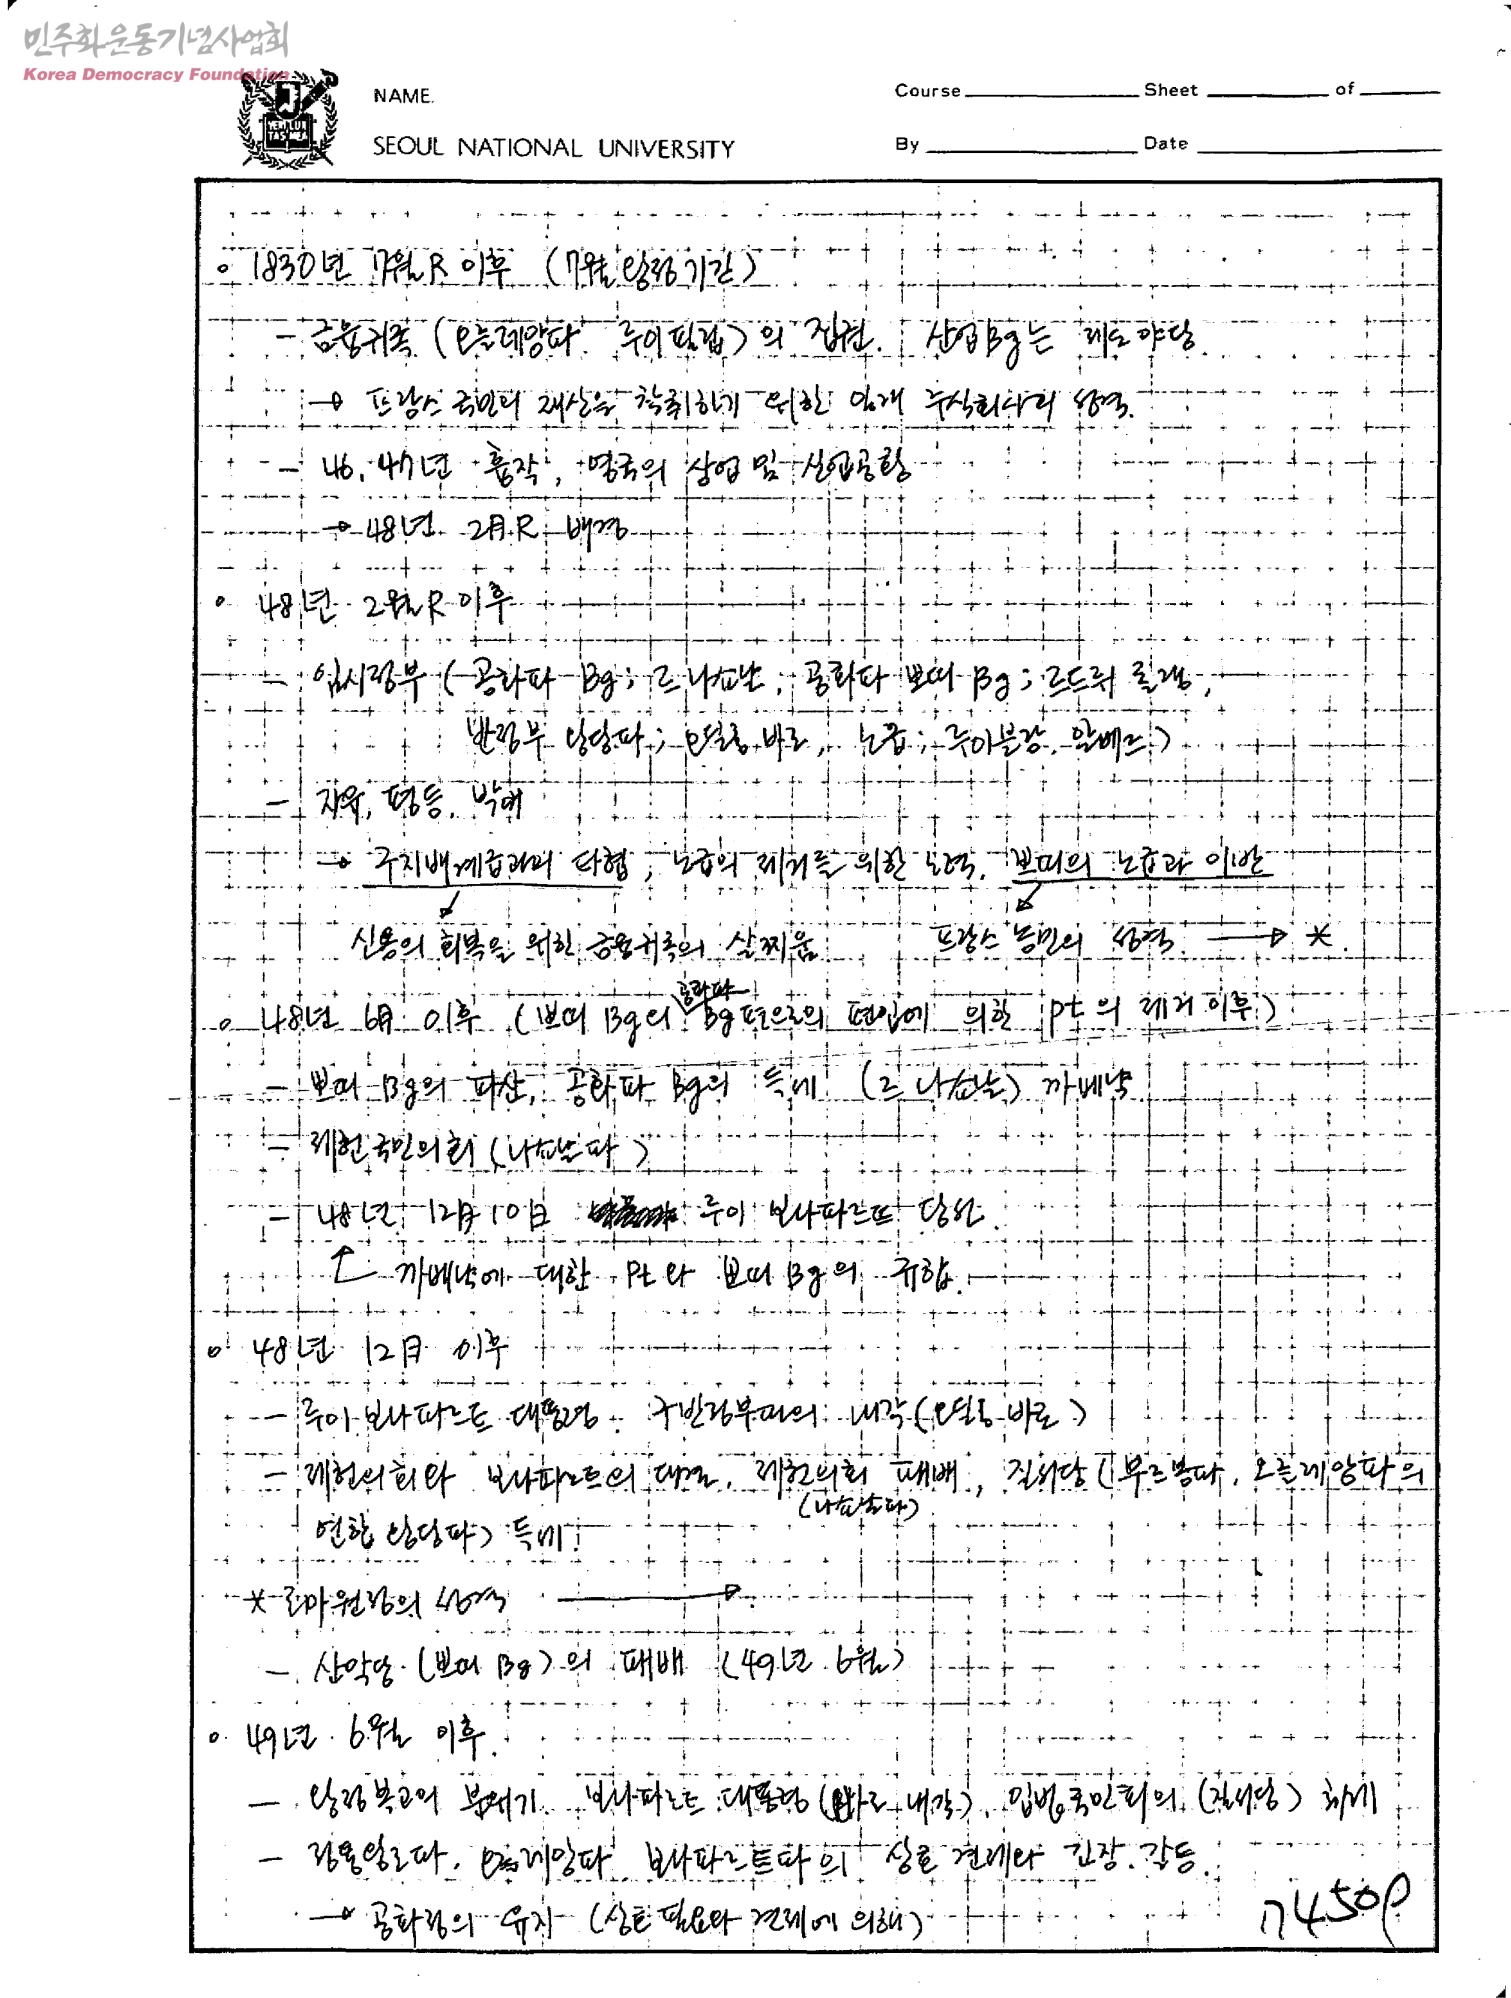 민주화운동기념사업회
Korea Democracy Foundation
VERI LUX TAS MEA
NAME.
SEOUL NATIONAL UNIVERSITY
Course Sheet of
By Date
o 1830년 7월 R 이후 (7월 왕정기간)
- 금융귀족 (오를레앙파 루이필립)의 집권. 산업 Bg는 제도야당.
→ 프랑스 국민의 재산을 착취하기 위한 일개 주식회사의 성격.
- 46, 47년 흉작, 영국의 상업 및 산업공황
→ 48년 2月 R 배경
o 48년 2월 R 이후
- 임시정부 (공화파 Bg; 르 나쇼날, 공화파 쁘띠 Bg; 르드뤼 롤랭,
반정부 왕당파; 오딜롱 바로, 노급; 루이블랑, 알베르)
- 자유, 평등, 박애
→ 구지배계급과의 타협, 노급의 제거를 위한 노력, 쁘띠의 노급과 이반
신용의 회복을 위한 금융귀족의 살찌움 프랑스 농민의 성격 → *
o 48년 6月 이후 (쁘띠 Bg의 공화파 Bg편으로의 편입에 의한 pt의 제거 이후)
- 쁘띠 Bg의 파산, 공화파 Bg의 득세 (르 나쇼날) 까베냑
- 제헌국민의회 (나쇼날파)
- 48년 12月 10日 루이 보나파르뜨 당선.
까베냑에 대한 Pt와 쁘띠 Bg의 규합.
o 48년 12月 이후
- 루이 보나파르트 대통령. 구반정부파의 내각 (오딜롱 바로)
- 제헌의회와 보나파르트의 대결, 제헌의회 패배, 질서당 (부르봉파, 오를레앙파의
(나쇼날파)
연합 왕당파) 득세!
* 로마원정의 성격 →
- 산악당 (쁘띠 Bg)의 패배 (49년 6월)
o 49년 6월 이후.
- 왕정복고의 분위기. 보나파르트 대통령 (바로 내각), 입법국민회의 (질서당) 회세
- 정통왕조파, 오를레앙파, 보나파르트파의 상호 견제와 긴장. 갈등.
→ 공화정의 유지 (상호 필요와 견제에 의해)
ㄱ450p